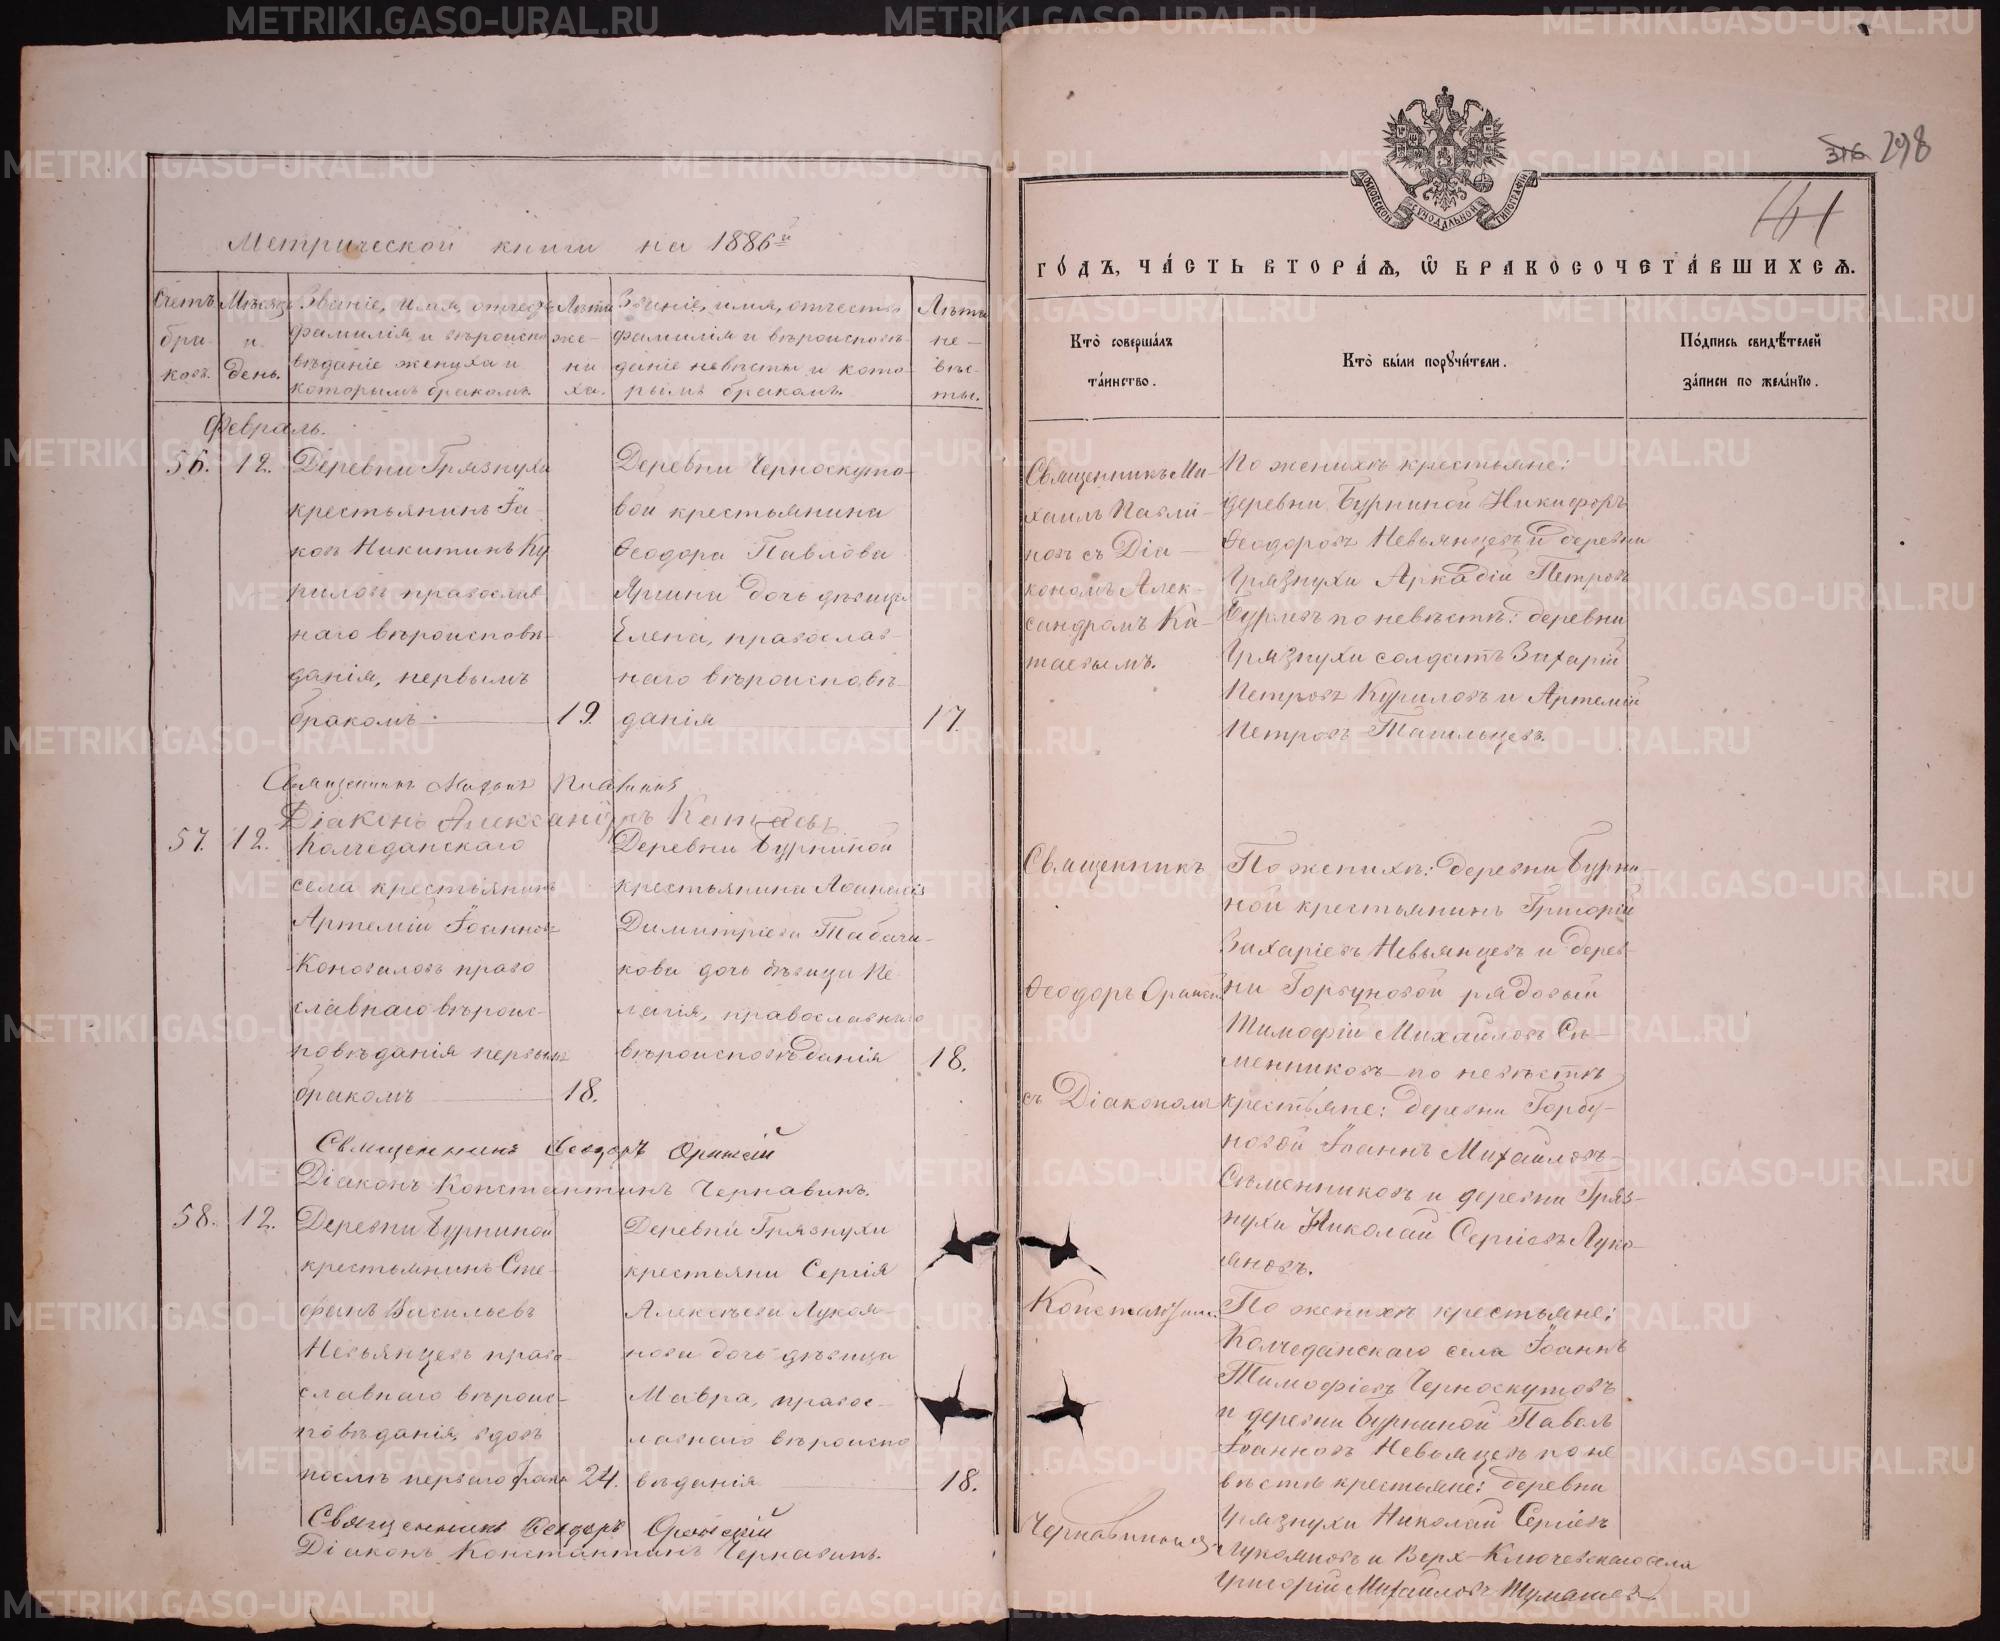 Метрической книги на 1886й
Счетъ бра- ковъ.
Мѣсяцъ и день.
Званіе, имя, отчество, фамилія и вѣроиспо- вѣданіе жениха и которымъ бракомъ.
Лѣта же- ни ха.
Званіе, имя, отчество фамилія и вѣроисповѣ- даніе невѣсты и кото- рымъ бракомъ.
Лѣта не- вѣс- ты.
Февраль.
56. 12.
Деревни Грязнухи
крестьянинъ Іа-
ковъ Никитинъ Ку
риловъ православ
наго вѣроисповѣ-
данія, первымъ
бракомъ. 19.
Деревни Черноскуто-
вой крестьянина
Ѳеодора Павлова
Яшина дочь дѣвица
Елена, православ-
наго вѣроисповѣ-
данія 17.
Священникъ Михаилъ Павлинъ
Діаконъ Александръ Катаевъ
57. 12.
Колчеданскаго
села крестьянинъ
Артемій Іоанновъ
Коноваловъ право
славнаго вѣроис-
повѣданія первымъ
бракомъ 18.
Деревни Бурниной
крестьянина Аѳанасія
Димитріева Табачи-
кова дочь дѣвица Пе-
лагія, православнаго
вѣроисповѣданія 18.
Священникъ Ѳеодоръ
Діаконъ Константинъ Чернавинъ.
58. 12.
Деревни Бурниной
крестьянинъ Сте-
фанъ Васильевъ
Невьянцевъ право-
славнаго вѣроис-
повѣданія, вдовъ
послѣ перваго брака 24.
Деревни Грязнухи
крестьяни Сергія
Алексѣева Лукоя-
нова дочь дѣвица
Мавра, правос-
лавнаго вѣроиспо
вѣданія 18.
Священникъ Ѳеодоръ
Діаконъ Константинъ Чернавинъ.
316 298
МОСКОВСКОЙ СѴНОДАЛЬНОЙ ТИПОГРАФІИ
ГО́ДЪ, ЧА́СТЬ ВТОРА́Ѧ, Ѽ БРАКОСОЧЕТА́ВШИХСѦ.
Кто̀ соверша́лъ та́инство.
Кто̀ бы́ли порꙋчи́тели.
По́дпись свидѣ́телей за́писи по жела́нїю.
Священникъ Ми-
хаилъ Павли-
новъ съ Діа-
кономъ Алек-
сандромъ Ка-
таевымъ.
По женихѣ крестьяне:
деревни Бурниной Никифоръ
Ѳеодоровъ Невьянцевъ и деревни
Грязнухи Аркадій Петровъ
Бурмовъ по невѣстѣ: деревни
Грязнухи солдатъ Захарій
Петровъ Куриловъ и Артемій
Петровъ Тагильцевъ.
Священникъ
Ѳеодоръ
съ Діакономъ
Константин.
По женихѣ: деревни Бурни-
ной крестьянинъ Григорій
Захаріевъ Невьянцевъ и дерев-
ни Горбуновой рядовый
Тимофій Михайловъ Сѣ-
менниковъ по невѣстѣ
крестьяне: деревни Горбу-
новой Іоаннъ Михайловъ
Сѣменниковъ и деревни Гряз-
нухи Николай Сергіевъ Луко-
яновъ.
По женихѣ крестьяне:
Колчеданскаго села Іоаннъ
Тимофіевъ Черноскутовъ
и деревни Бурниной Павелъ
Іоанновъ Невьянцевъ по не
вѣстѣ крестьяне: деревни
Грязнухи Николай Сергіевъ
Лукояновъ и Верх-Ключевскаго села
Григорій Михайловъ Тумашевъ
METRIKI.GASO-URAL.RU